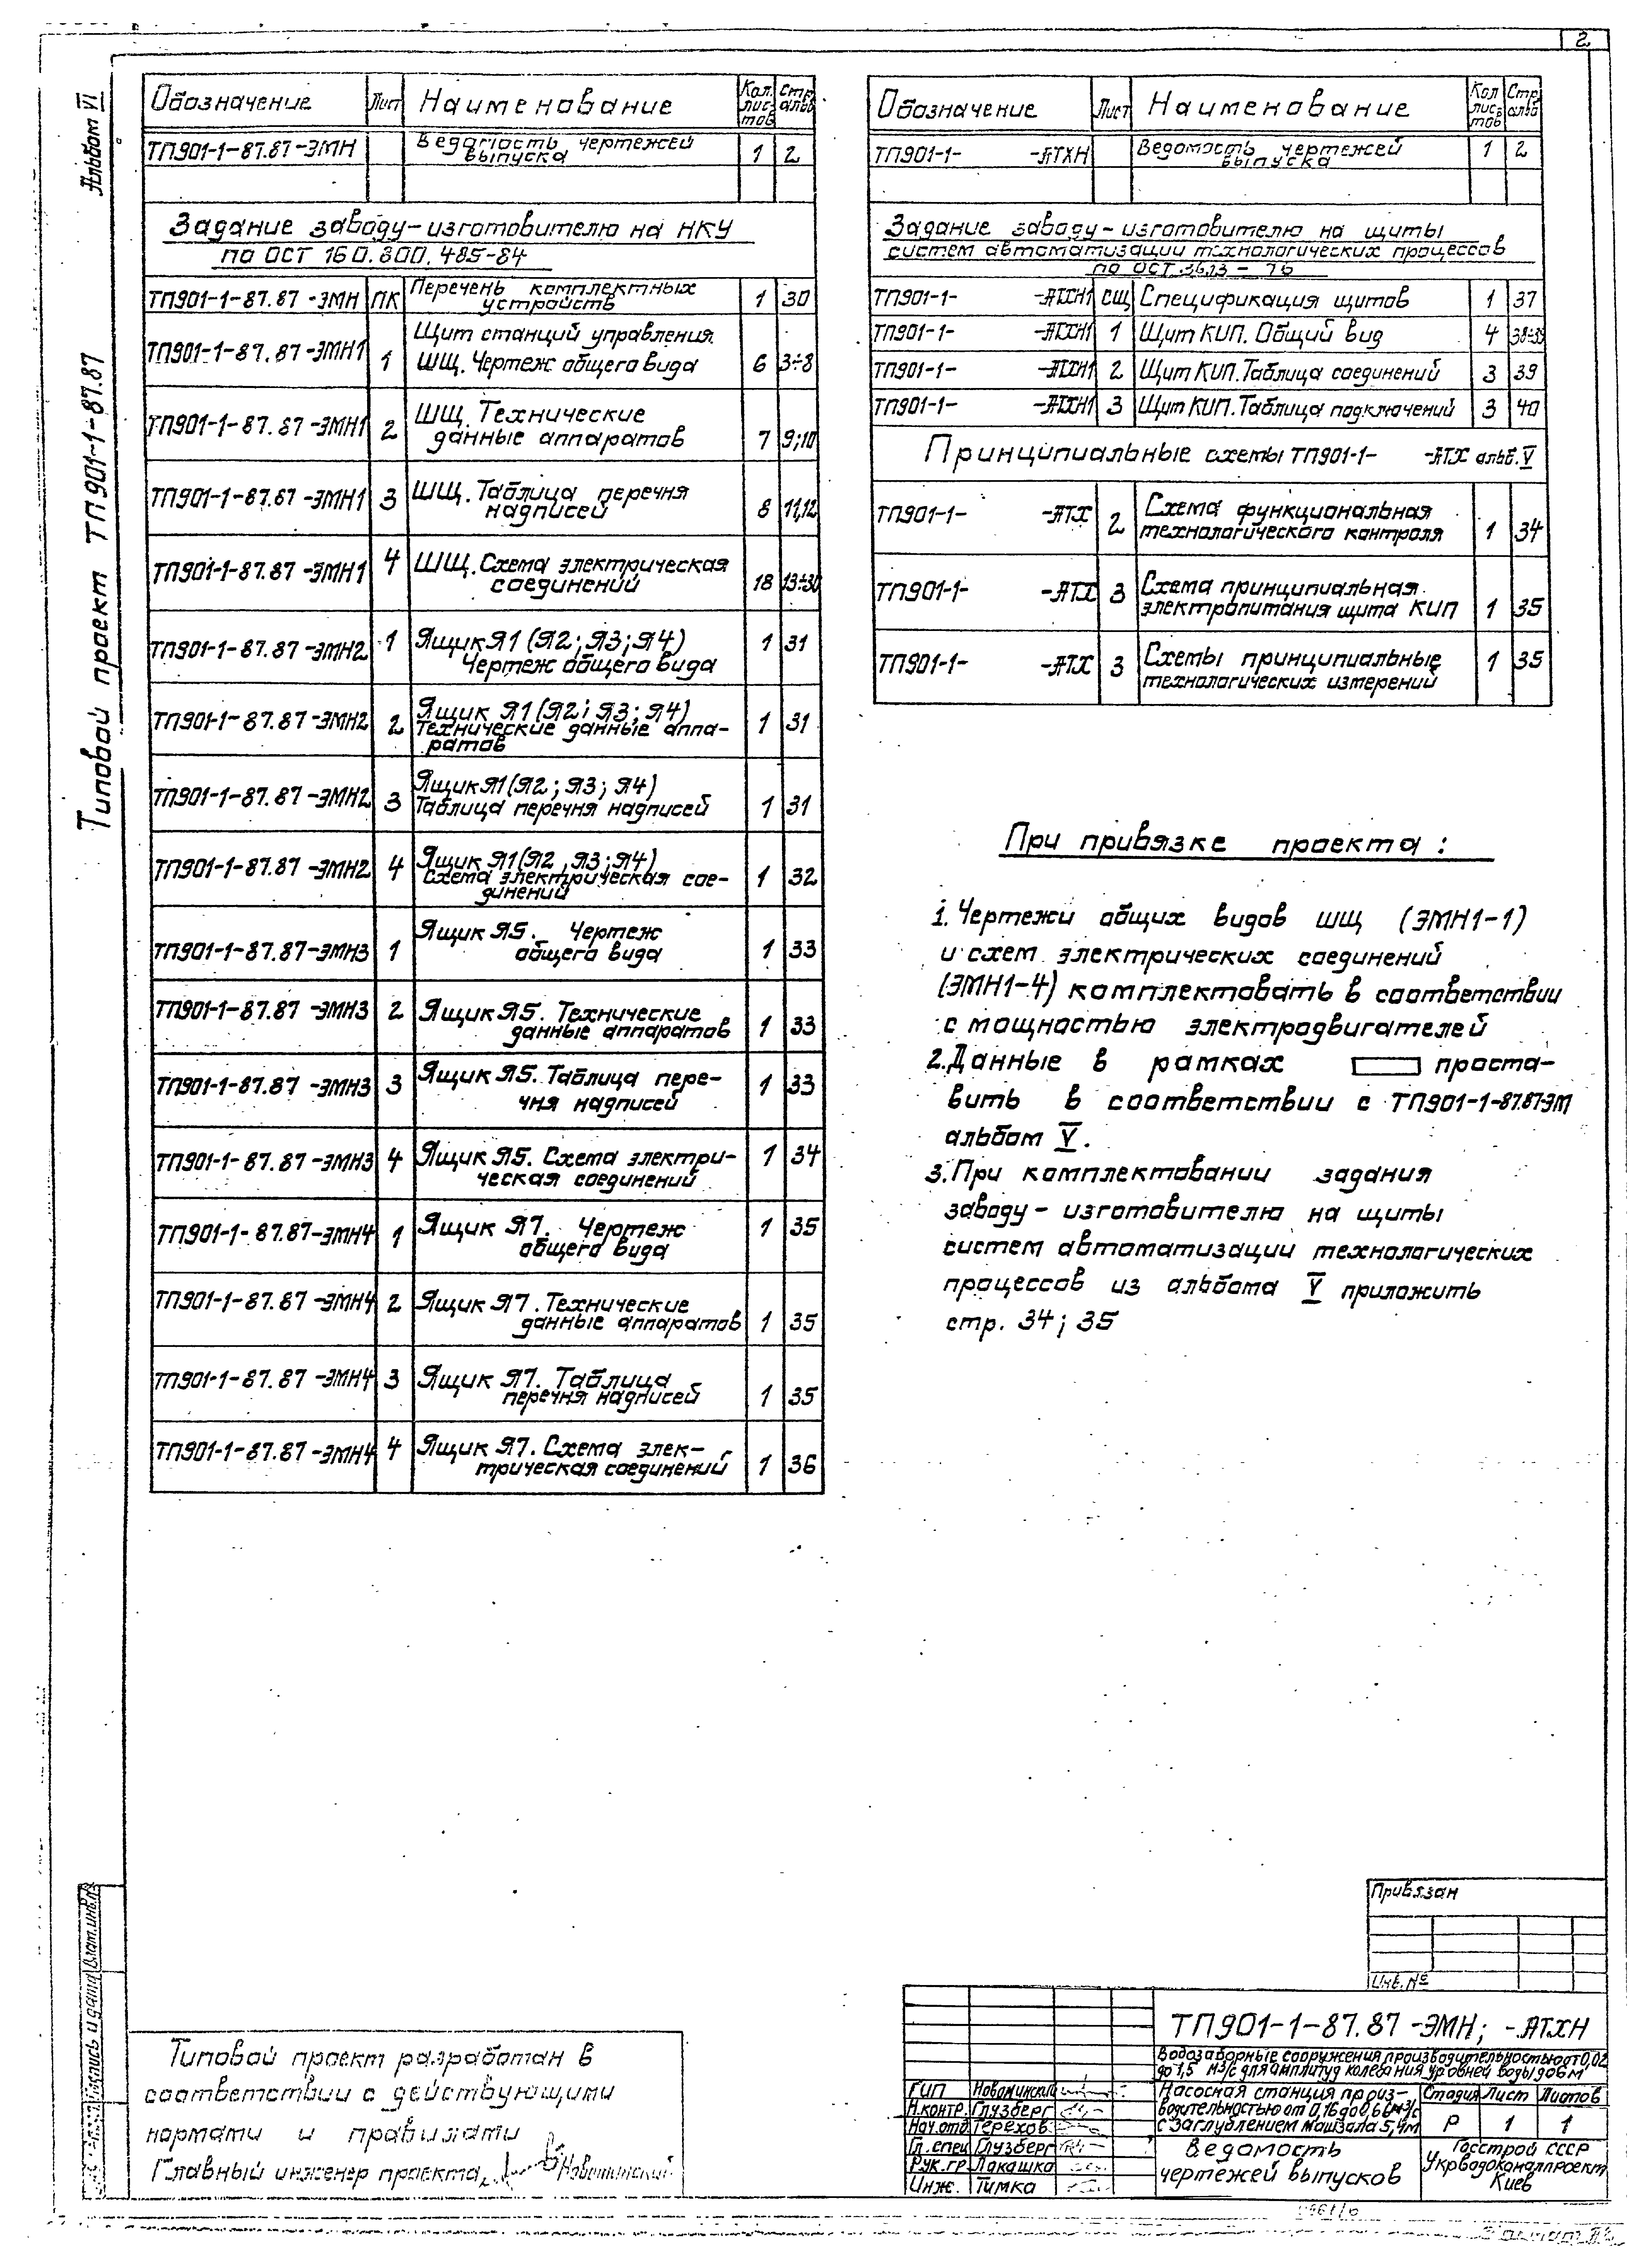 2
Альбом VI
Типовой проект ТП901-1-87.87
Обозначение Лист Наименование Кол. лис- тов Стр. альб
ТП901-1-87.87-ЭМН Ведомость чертежей выпуска 1 2
Задание заводу-изготовителю на НКУ
по ОСТ 160.800.485-84
ТП901-1-87.87-ЭМН ПК Перечень комплектных устройств 1 30
ТП901-1-87.87-ЭМН1 1 Щит станций управления ШЩ. Чертеж общего вида 6 3÷8
ТП901-1-87.87-ЭМН1 2 ШЩ. Технические данные аппаратов 7 9;10
ТП901-1-87.87-ЭМН1 3 ШЩ. Таблица перечня надписей 8 11,12
ТП901-1-87.87-ЭМН1 4 ШЩ. Схема электрическая соединений 18 13÷30
ТП901-1-87.87-ЭМН2 1 Ящик Я1 (Я2; Я3; Я4) Чертеж общего вида 1 31
ТП901-1-87.87-ЭМН2 2 Ящик Я1 (Я2; Я3; Я4) Технические данные аппа- ратов 1 31
ТП901-1-87.87-ЭМН2 3 Ящик Я1 (Я2; Я3; Я4) Таблица перечня надписей 1 31
ТП901-1-87.87-ЭМН2 4 Ящик Я1 (Я2, Я3; Я4) Схема электрическая сое- динений 1 32
ТП901-1-87.87-ЭМН3 1 Ящик Я5. Чертеж общего вида 1 33
ТП901-1-87.87-ЭМН3 2 Ящик Я5. Технические данные аппаратов 1 33
ТП901-1-87.87-ЭМН3 3 Ящик Я5. Таблица пере- чня надписей 1 33
ТП901-1-87.87-ЭМН3 4 Ящик Я5. Схема электри- ческая соединений 1 34
ТП901-1-87.87-ЭМН4 1 Ящик Я7. Чертеж общего вида 1 35
ТП901-1-87.87-ЭМН4 2 Ящик Я7. Технические данные аппаратов 1 35
ТП901-1-87.87-ЭМН4 3 Ящик Я7. Таблица перечня надписей 1 35
ТП901-1-87.87-ЭМН4 4 Ящик Я7. Схема элек- трическая соединений 1 36
Обозначение Лист Наименование Кол лис- тов Стр. альб
ТП901-1- -АТХН Ведомость чертежей выпуска 1 2
Задание заводу-изготовителю на щиты
систем автоматизации технологических процессов
по ОСТ 36.13-76
ТП901-1- -АТХН1 СЩ Спецификация щитов 1 37
ТП901-1- -АТХН1 1 Щит КИП. Общий вид 4 38÷39
ТП901-1- -АТХН1 2 Щит КИП. Таблица соединений 3 39
ТП901-1- -АТХН1 3 Щит КИП. Таблица подключений 3 40
Принципиальные схемы ТП901-1- -АТХ альб. V
ТП901-1- -АТХ 2 Схема функциональная технологического контроля 1 34
ТП901-1- -АТХ 3 Схема принципиальная электропитания щита КИП 1 35
ТП901-1- -АТХ 3 Схемы принципиальные технологических измерений 1 35
При привязке проекта:
1. Чертежи общих видов ШЩ (ЭМН1-1)
и схем электрических соединений
(ЭМН1-4) комплектовать в соответствии
с мощностью электродвигателей
2. Данные в рамках проста-
вить в соответствии с ТП901-1-87.87-ЭМ
альбом V.
3. При комплектовании задания
заводу-изготовителю на щиты
систем автоматизации технологических
процессов из альбома V приложить
стр. 34; 35
Привязан
Инв. №
ТП901-1-87.87-ЭМН; -АТХН
Водозаборные сооружения производительностью от 0,02
до 1,5 м3/с для амплитуд колебания уровней воды до 6 м
Насосная станция произ-
водительностью от 0,16 до 0,6 м3/с
с заглублением машзала 5,4м
Стадия Лист Листов
Р 1 1
Ведомость
чертежей выпусков
Госстрой СССР
Укрводоканалпроект
Киев
ГИП Новоминский
Н.контр. Глузберг
Нач.отд Терехов
Гл.спец Глузберг
Рук.гр. Лакашка
Инж. Тимка
Типовой проект разработан в
соответствии с действующими
нормами и правилами
Главный инженер проекта Новоминский
Подпись и дата
Взам.инв.№
Формат А2